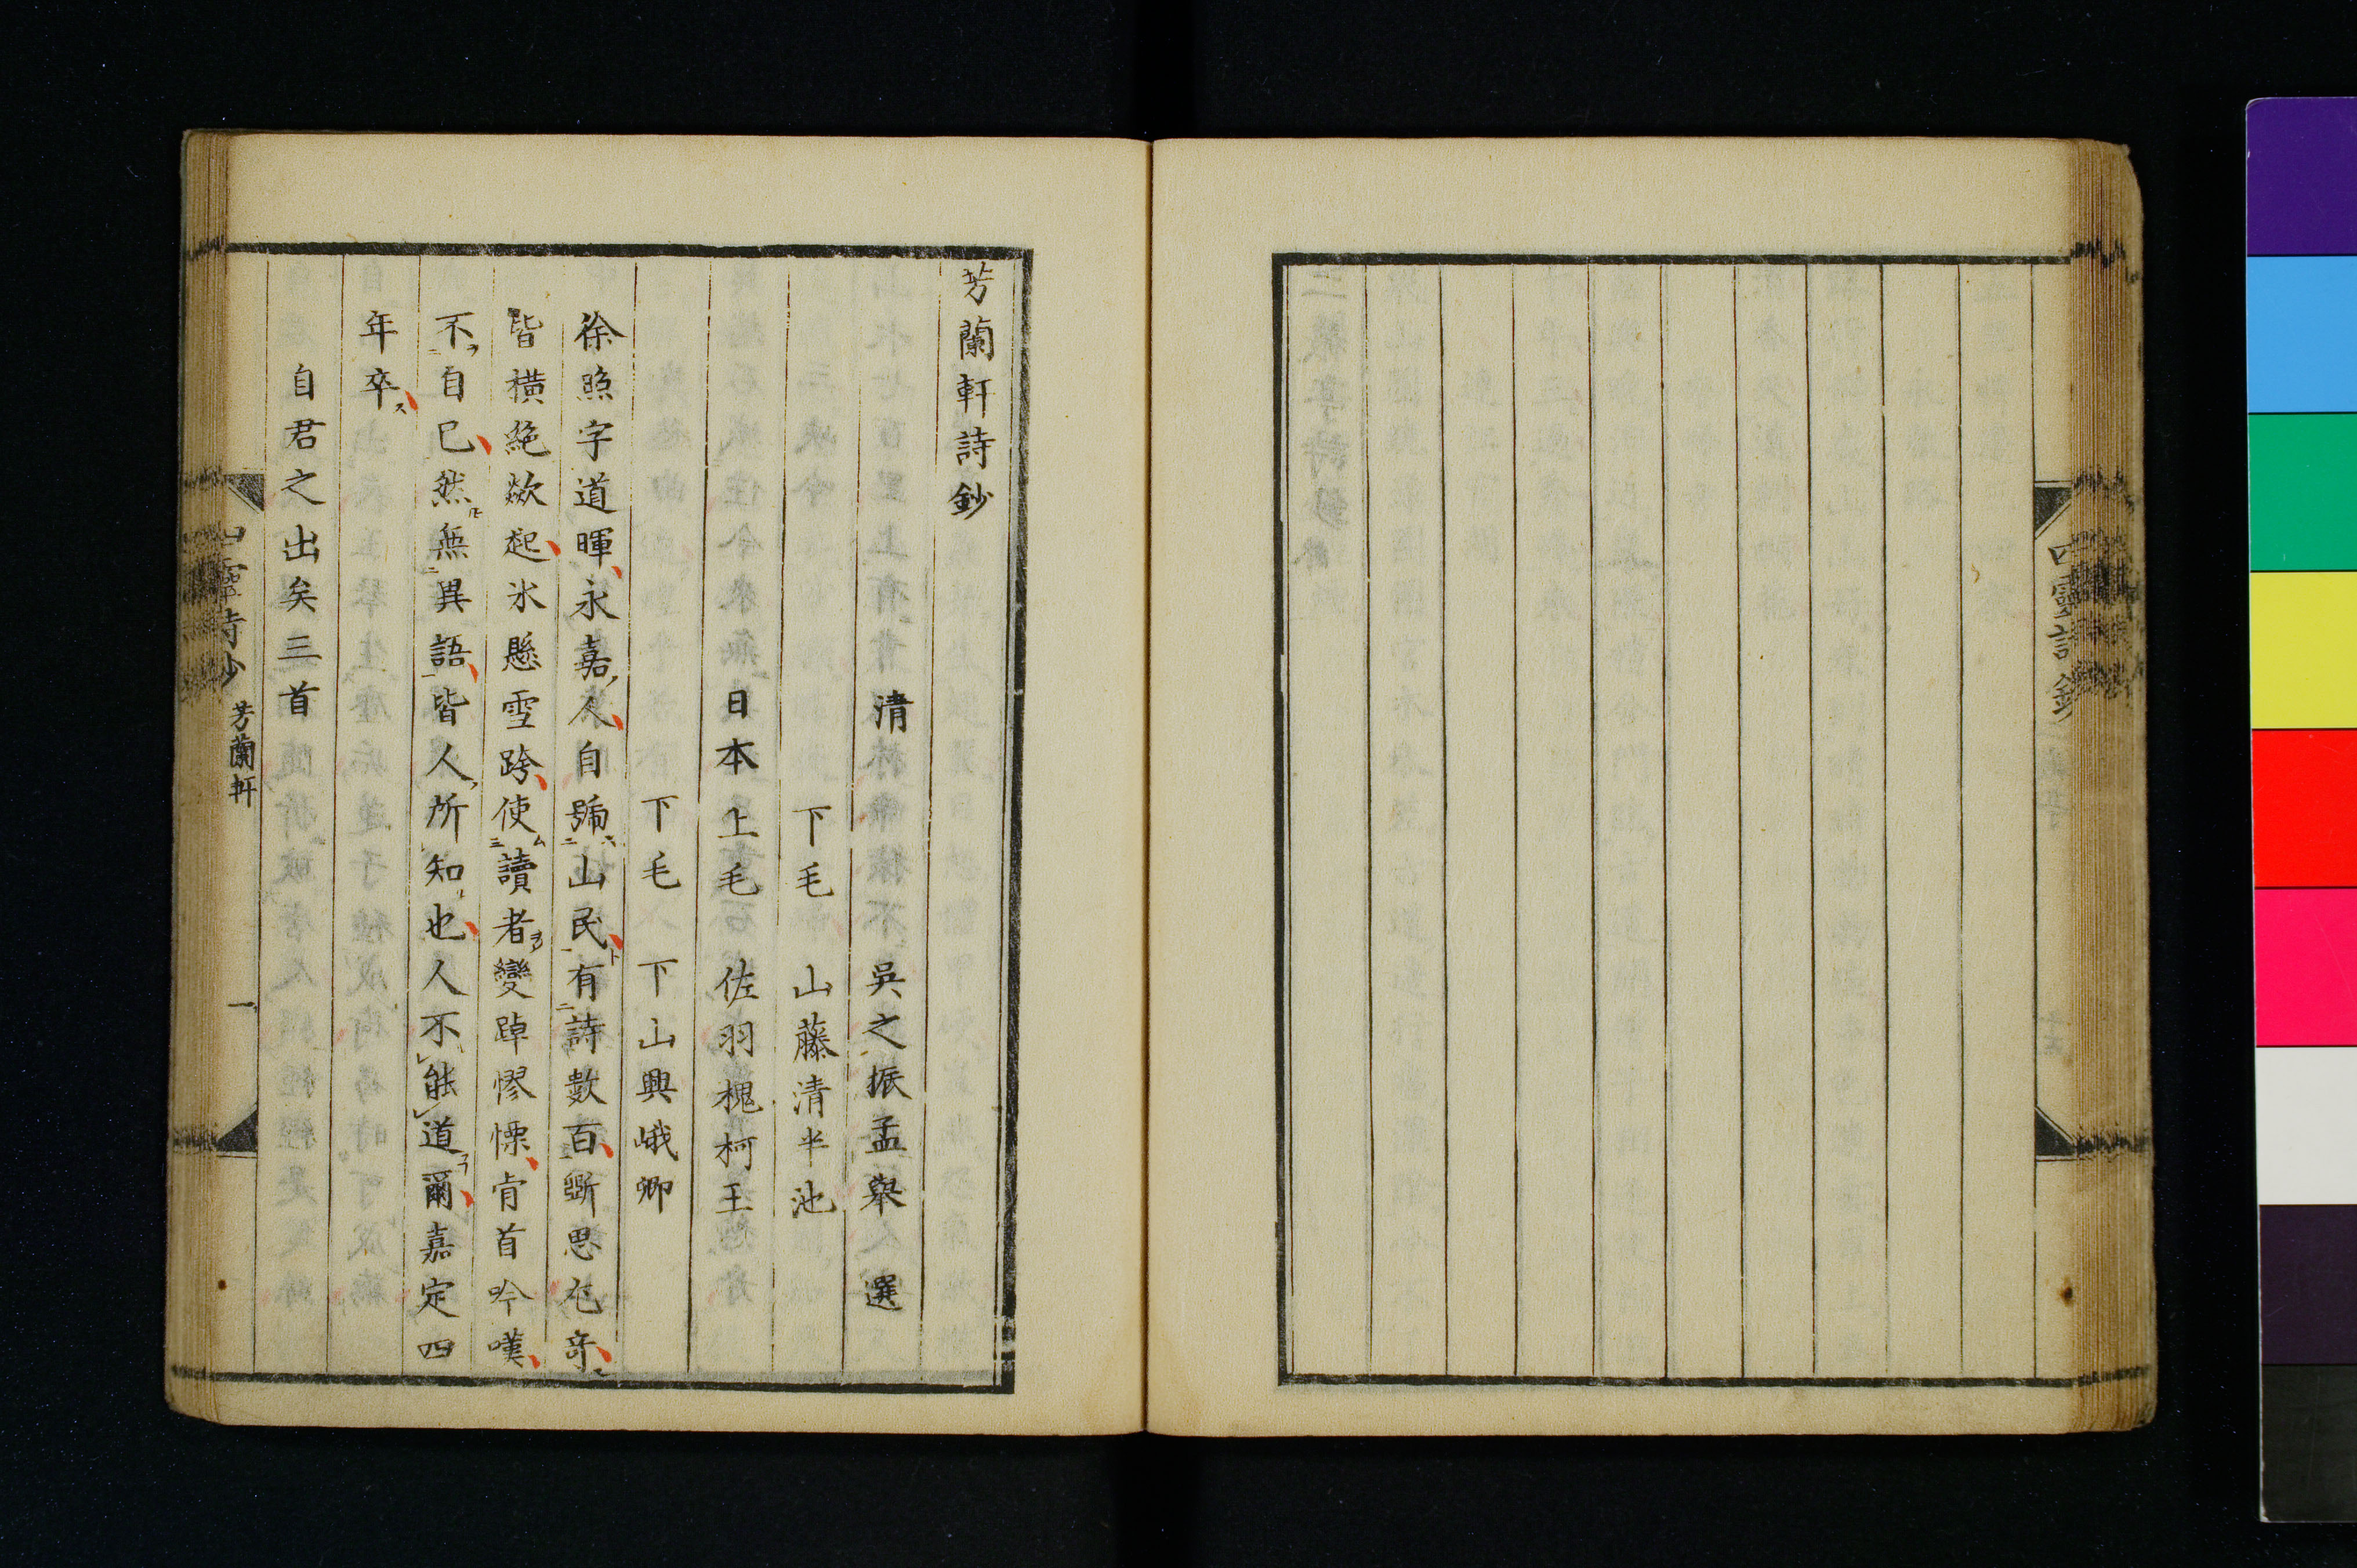 四靈詩鈔
芳蘭軒詩鈔
清 吳之振孟舉 選
下毛 山藤清半池
日本 上毛 佐羽槐柯王
下毛 下山興峨卿
徐照字道暉永嘉人自號山民有詩數百斵思尤竒
皆橫絶歘起氷懸雪跨使讀者變踔憀慄肯首吟嘆
不自已然無異語皆人所知也人不能道爾嘉定四
年卒
自君之出矣三首
芳蘭軒
一